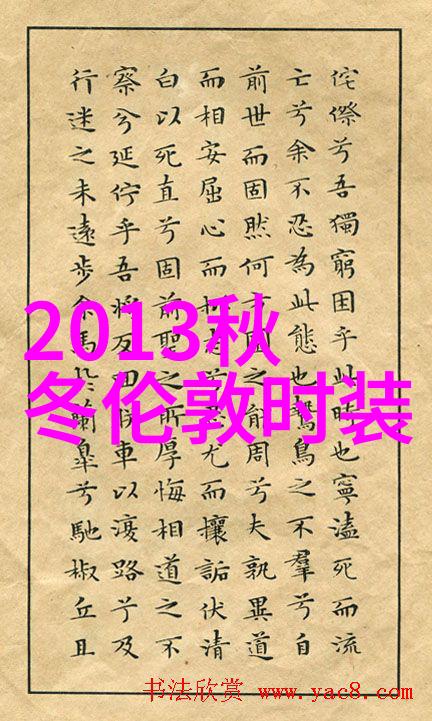 侘傺兮吾獨窮困乎此時也寧溘死而流
亡兮余不忍為此態也鷙鳥之不羣兮自
前世而固然何方圜之能周兮夫孰異道
而相安屈心而抑志兮忍尤而攘詬伏清
白以死直兮固前聖之所厚悔相道之不
察兮延佇乎吾將反回朕車以復路兮及
行迷之未遠步余馬於蘭皋兮馳椒丘且
2013秋
冬伦敦时装
书法欣赏 www.yac8.com